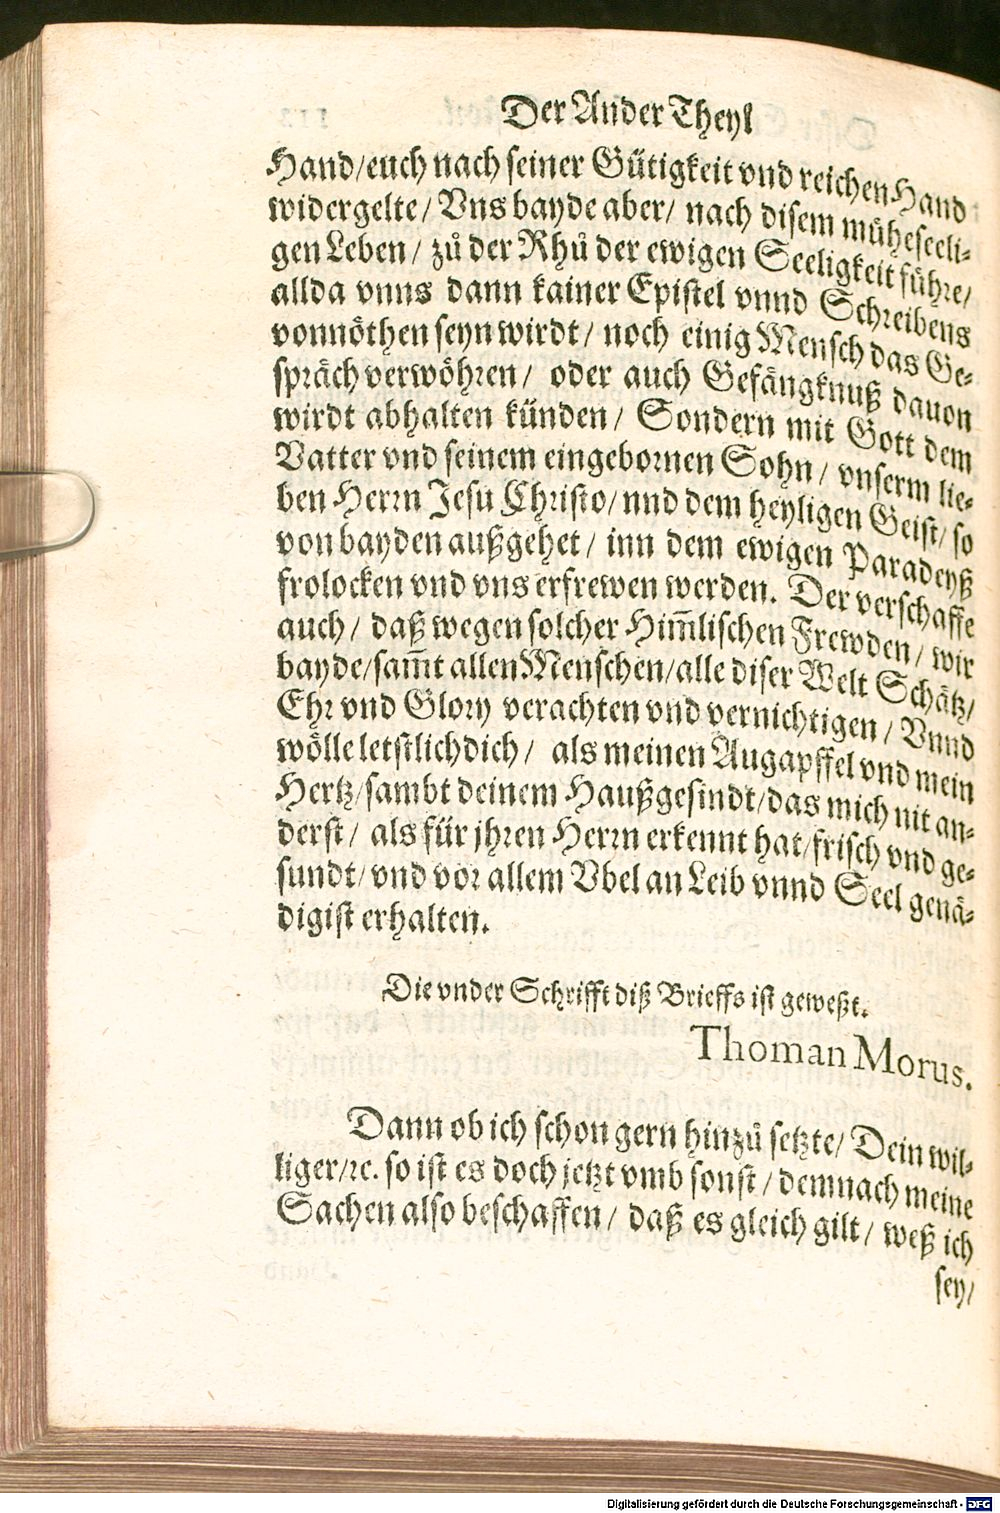 Der Ander Theyl
Hand/euch nach seiner Gütigkeit vnd reichen Hand
widergelte/ Vns bayde aber/ nach disem müheseeli-
gen Leben/ zů der Rhů der ewigen Seeligkeit führe/
allda vnns dann kainer Epistel vnnd Schreibens
vonnöthen seyn wirdt/ noch einig Mensch das Ge-
spräch verwöhren/ oder auch Gefängknuß dauon
wirdt abhalten künden/ Sondern mit Gott dem
Vatter vnd seinem eingebornen Sohn/ vnserm lie-
ben Herrn Jesu Christo/ nnd dem heyligen Geist/ so
von bayden außgehet/ inn dem ewigen Paradeyß
frolocken vnd vns erfrewen werden. Der verschaffe
auch/ daß wegen solcher Him̄lischen Frewden/ wir
bayde/sam̄t allen Menschen/alle diser Welt Schätz/
Ehr vnd Glory verachten vnd vernichtigen/ Vnnd
wölle letstlich dich/ als meinen Augapffel vnd mein
Hertz/sambt deinem Haußgesindt/das mich nit an-
derst/ als für jhren Herrn erkennt hat/frisch vnd ge-
sundt/vnd vor allem Vbel an Leib vnnd Seel genä-
digist erhalten.
Die vnder Schrifft diß Brieffs ist geweßt.
Thoman Morus.
Dann ob ich schon gern hinzů setzte/ Dein wil-
liger/ꝛc. so ist es doch jetzt vmb sonst/ demnach meine
Sachen also beschaffen/ daß es gleich gilt/ weß ich
sey/
Digitalisierung gefördert durch die Deutsche Forschungsgemeinschaft - DFG